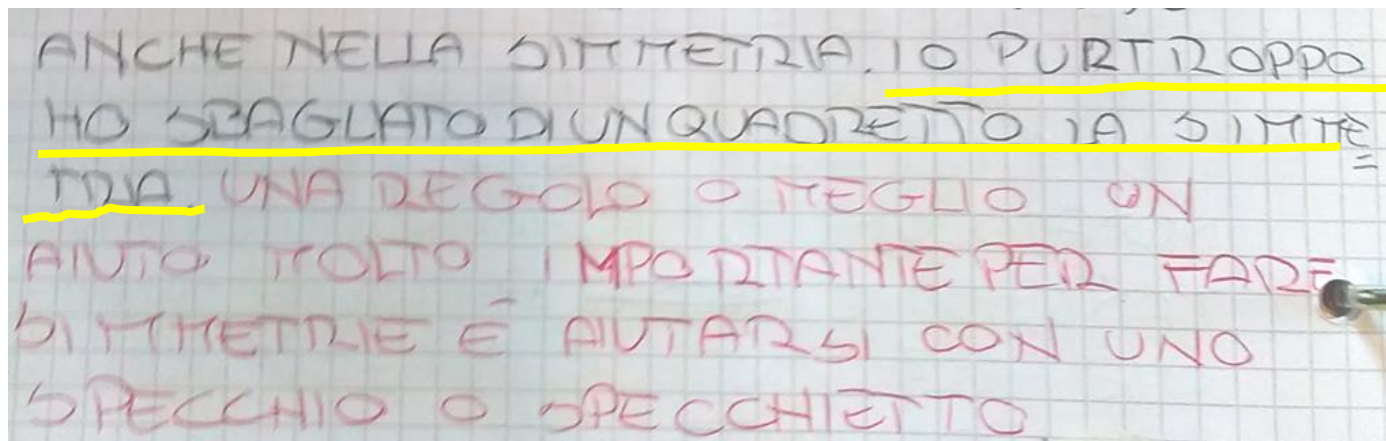 ANCHE NELLA SIMMETRIA. IO PURTROPPO
HO SBAGLIATO DI UN QUADRETTO LA SIMME=
TRIA. UNA REGOLA O MEGLIO UN
AIUTO MOLTO IMPORTANTE PER FARE
SIMMETRIE É AIUTARSI CON UNO
SPECCHIO O SPECCHIETTO